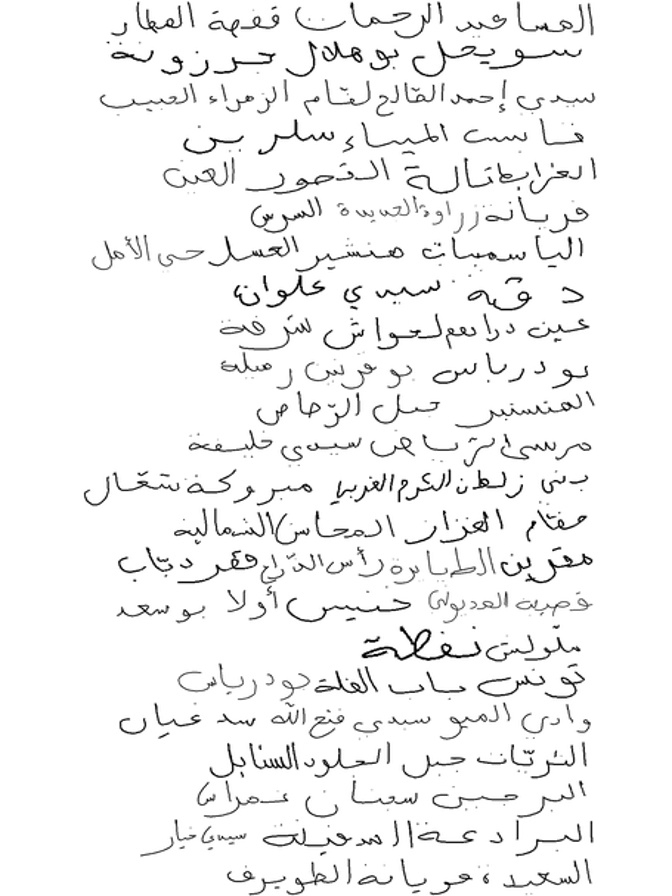 المساعيد الرحمات قفصة المطار
سويحل بوهلال جرزونة
سيدي إحمد الصالح لقام الزهراء الحبيب
فاست الميساء سلر بن
الغرابطالة القحور العين
فريانة زراوة الجديدة السرس
الياسمينات هنشير العسل حي الأمل
دقة سيدي علوان
عين دراهم لحواش شرفة
بودرياس بوعرس رميلة
المنستير جبل الرصاص
مرسى الرياض سيدي خليفة
بني زلطن الكرم الغربي مبروكة شعال
مقام الغزاز المحاس الشمالية
مقرين الطبابرة رأس الذراع قصر دباب
قصيبة المديوني خنيس أولا بوسعد
ملولش نفطة
تونس باب الفلة بودرياس
وادي الميو سيدي فتح الله سد غيان
الثريات جبل الجلود السنابل
البرجين سمنان غمراس
البرادعة السعيدة سيدي خيار
السعيدة فريانة الطويرف